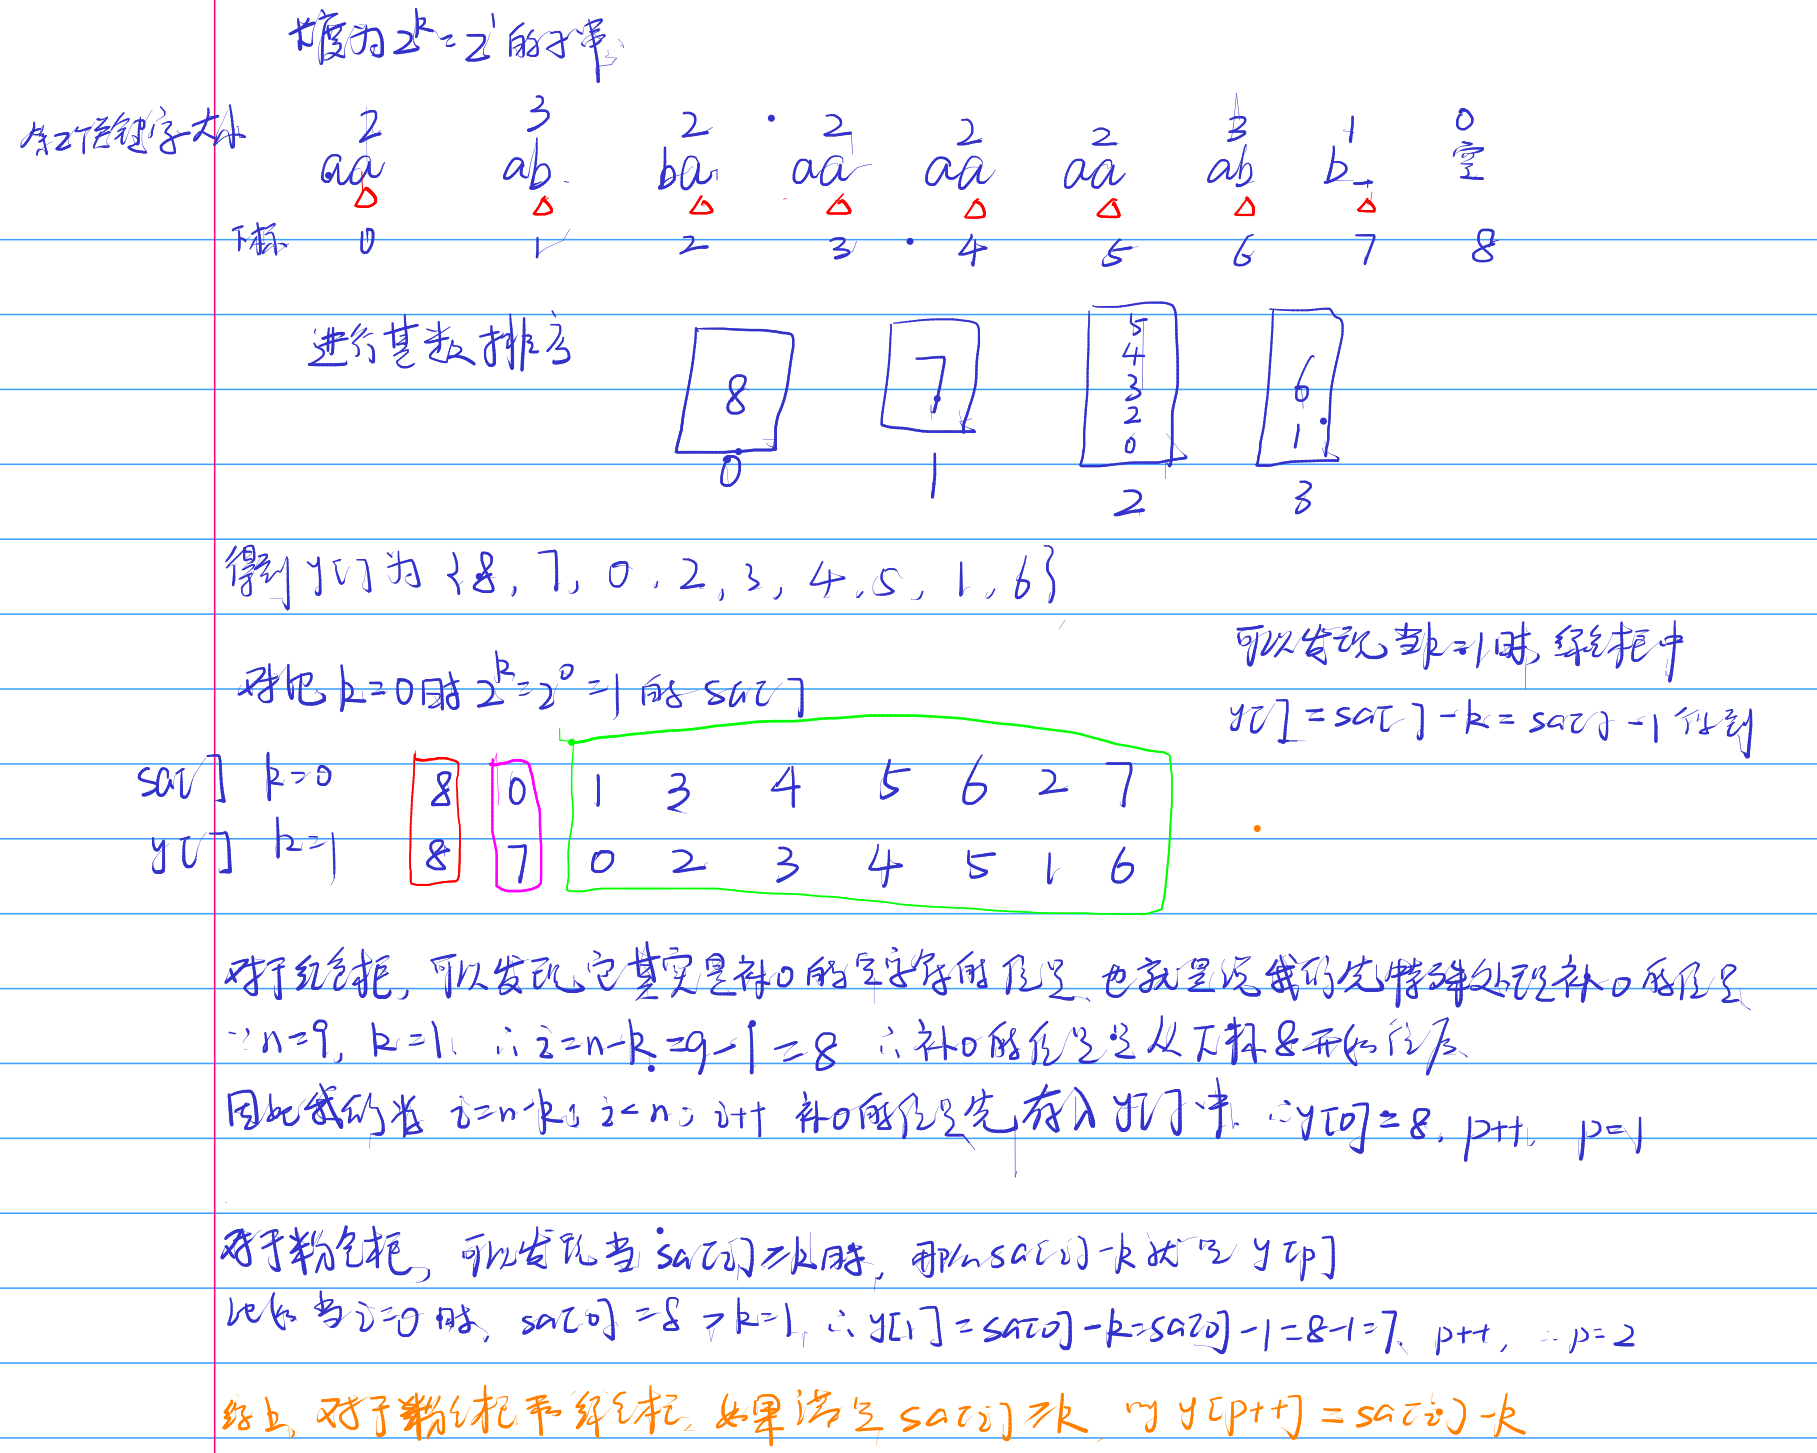 长度为2^k=2^1的子串
第二关键字大小 2 3 2 2 2 2 3 1 0
aa ab ba aa aa aa ab b_ 空
下标 0 1 2 3 4 5 6 7 8
进行基数排序
8 7 5 4 3 2 0 6 1
0 1 2 3
得到y[]为{8,7,0,2,3,4,5,1,6}
可以发现,当k=1时,绿色框中
对比k=0时2^k=2^0=1的sa[]
y[]=sa[]-k=sa[]-1得到
sa[] k=0 8 0 1 3 4 5 6 2 7
y[] k=1 8 7 0 2 3 4 5 1 6
对于红色框,可以发现,它其实是补0的空字符的位置,也就是说我们先特殊处理补0的位置
∵n=9, k=1, ∴i=n-k=9-1=8 ∴补0的位置是从下标8开始往后
因此我们将 i=n-k; i<n; i++ 补0的位置先存入y[]中, ∴y[0]=8, p++, p=1
对于粉色框,可以发现当sa[i]≥k时,那么sa[i]-k就是y[p]
比如当i=0时, sa[0]=8>k=1, ∴y[1]=sa[0]-k=sa[0]-1=8-1=7, p++, ∴p=2
综上,对于粉色框和绿色框,如果满足sa[i]≥k, 则y[p++]=sa[i]-k